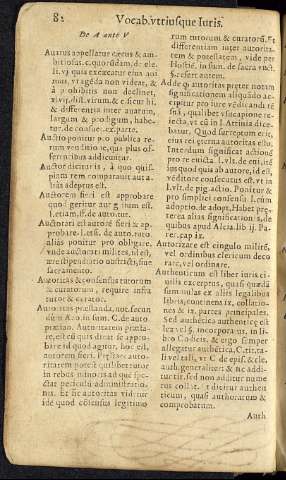 82 Vocab. vtriusque Iuris.
De A ante V
Auarus appellatur cæcus & am-
bitiosus. c. quorūdam, de ele.
vitij, & dist. virum. & e. sicut hi.
& differentia inter auarum,
largum & prodigum, habe-
tur. de consue. ex. parte.
Auctio ponitur pro publica re
rum venditione, quia plus of-
ferentibus addicuntur.
Auctor dicitur is, à quo quis-
piam rem comparaut aut a-
liàs adeptus est.
Auctorem fieri est approbare
quod geritur aut gestum est.
l. etiam. ff. de autoritat.
Auctorari est autorē fieri & ap-
probare. l. est. ff. de auto. reto.
aliàs ponitur pro obligare,
sacramento.
Autoritas & consensus tutorum
& curatorum, require infra
tutor & curator.
Autoritas præstanda, non secun
dum Azo. in sum. C. de auto.
præstan. Autoritatem præsta-
re, est cū quis dicat se appro-
bare id quod agitur, hoc est,
autorem fieri. Præstare auto-
ritatem potest quilibet tutor
in rebus minoris ad quē spe-
ctat periculū administratio-
nis. Et sic autoritas videtur
idē quod cōsensus legitimo
rum tutorum & curatorū. Et
differentiam inter autorita-
tem & potestatem, vide per
Hostiē. in sum. de sacra vnct.
§. et fert autem.
Adde q. autoritas præter notam
significationem aliquādo ac-
cipitur pro iure vēdicandi rē
suā, qualibet vsucapione re-
iecta, vt cū in l. Atrinia dice-
batur. Quod surreptum erit,
eius rei æterna autoritas esto.
Interdum significat actionē
pro re euicta. l. vlt. de euict. ide
in quod quia ab autore, id est,
vēditore consecutus est, vt in
l. vlt. de pig. actio. Ponitur &
pro simplici consensu. l. cum
adoptio. de adopt. Habet præ-
terea alias signification s, de
quibus apud Alcia. lib. ij. Pa-
rer. cap. ix.
Autorizare est cingulo militiæ,
vel ordinibus clericum deco
rare, vel ordinare.
Authenticum est liber iuris ci-
uilis excerptus, quasi quædā
summulæ ex aliis legalibus
libris, continens ix. collatio-
nes & ix. partes principales.
Sed authētica authenticę est
lex vel §. incorporatus in li-
bro Codicis, & ergo semper
allegatur authētica, C. tit. ta-
li vel tali, vt C. de epis. & cle.
auth. generaliter: & nec addi-
tur tit. sed non additur nume
rus collat. & dicitur authen
ticum, quasi authoratum &
comprobatum.
Auth